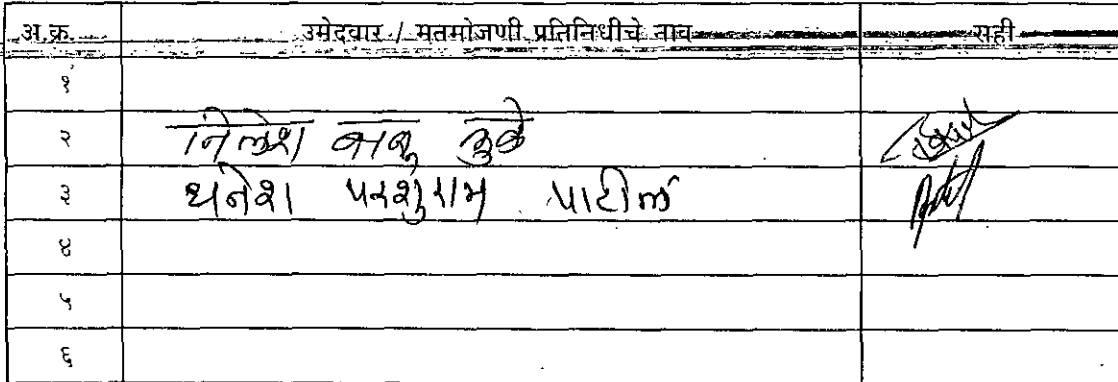 अ.क्र. उमेदवार / मतमोजणी प्रतिनिधीचे नाव सही
१
२ निलेश बाळु
३ धनेश परशुराम पाटील
४
५
६